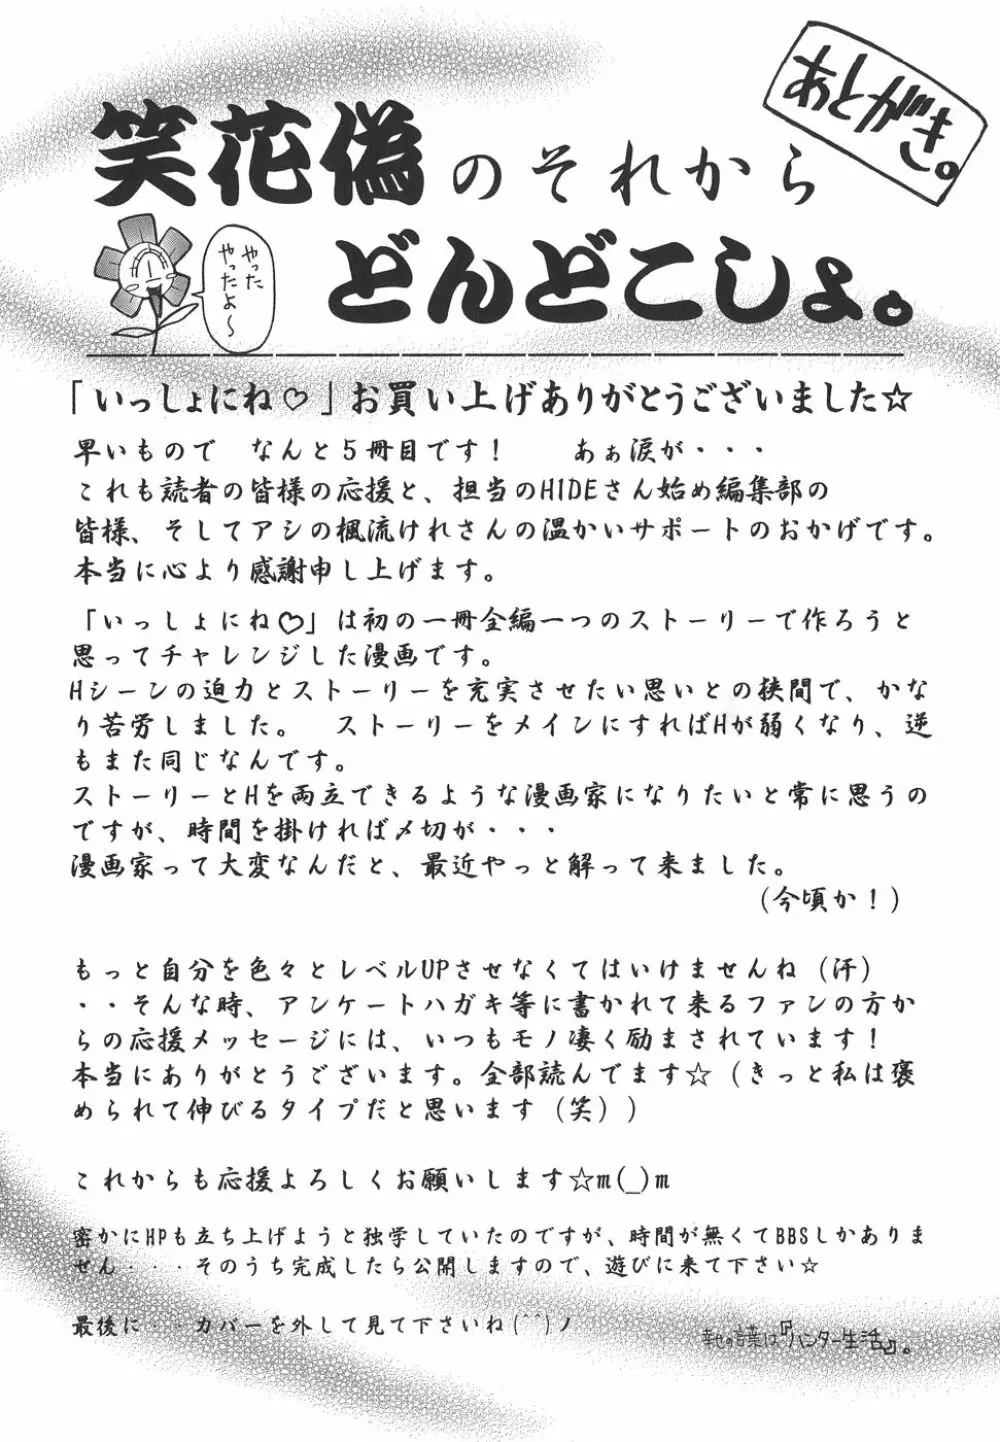 あとがき。
笑花偽のそれから
どんどこしょ。
やった
やったよ～
「いっしょにね♡」お買い上げありがとうございました☆
早いもので　なんと５冊目です！　　あぁ涙が・・・
これも読者の皆様の応援と、担当のHIDEさん始め編集部の
皆様、そしてアシの楓流けれさんの温かいサポートのおかげです。
本当に心より感謝申し上げます。
「いっしょにね♡」は初の一冊全編一つのストーリーで作ろうと
思ってチャレンジした漫画です。
Hシーンの迫力とストーリーを充実させたい思いとの狭間で、かな
り苦労しました。　ストーリーをメインにすればHが弱くなり、逆
もまた同じなんです。
ストーリーとHを両立できるような漫画家になりたいと常に思うの
ですが、時間を掛ければ〆切が・・・
漫画家って大変なんだと、最近やっと解って来ました。
（今頃か！）
もっと自分を色々とレベルUPさせなくてはいけませんね（汗）
・・そんな時、アンケートハガキ等に書かれて来るファンの方か
らの応援メッセージには、いつもモノ凄く励まされています！
本当にありがとうございます。全部読んでます☆（きっと私は褒
められて伸びるタイプだと思います（笑））
これからも応援よろしくお願いします☆m(_)m
密かにHPも立ち上げようと独学していたのですが、時間が無くてBBSしかありま
せん・・・そのうち完成したら公開しますので、遊びに来て下さい☆
最後に・・カバーを外して見て下さいね(^^)ノ
幸せの言葉は『ハンター生活』。